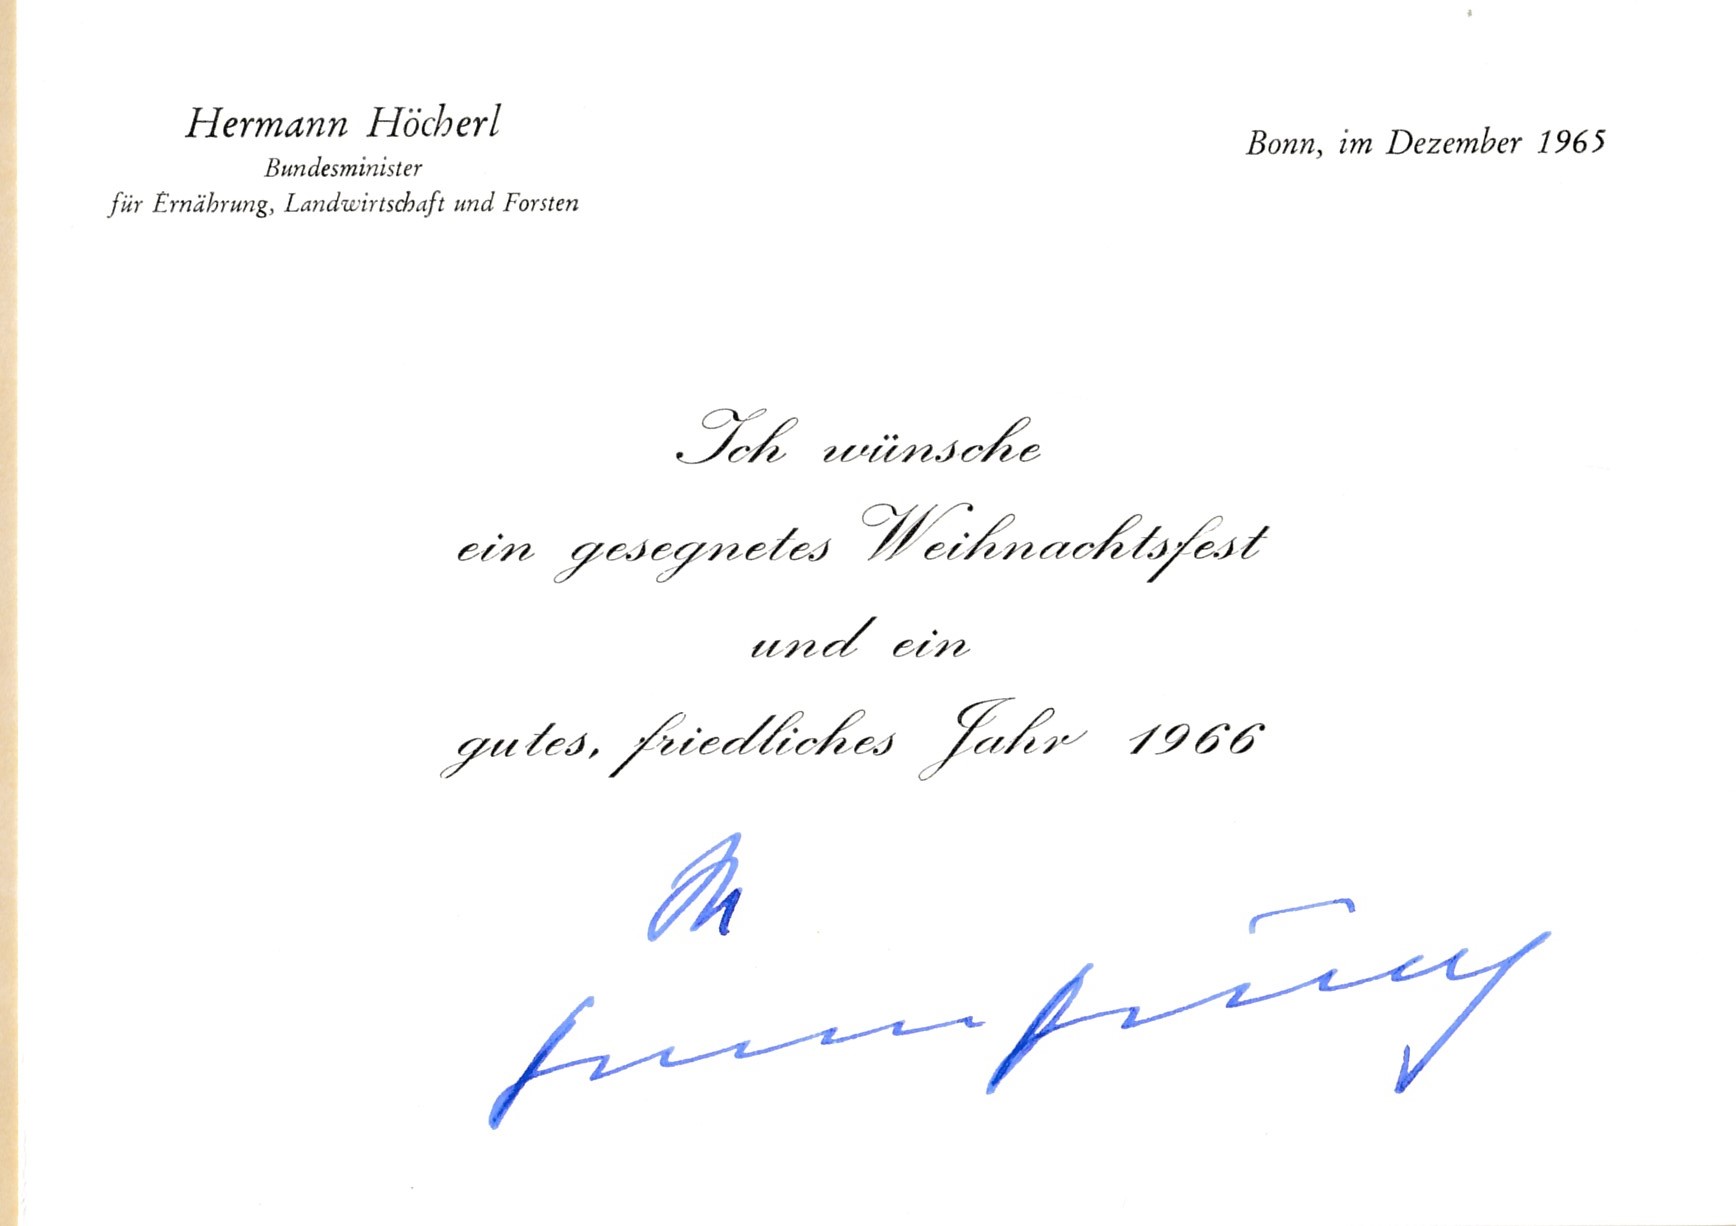 Hermann Höcherl
Bundesminister
für Ernährung, Landwirtschaft und Forsten
Bonn, im Dezember 1965
Ich wünsche
ein gesegnetes Weihnachtsfest
und ein
gutes, friedliches Jahr 1966